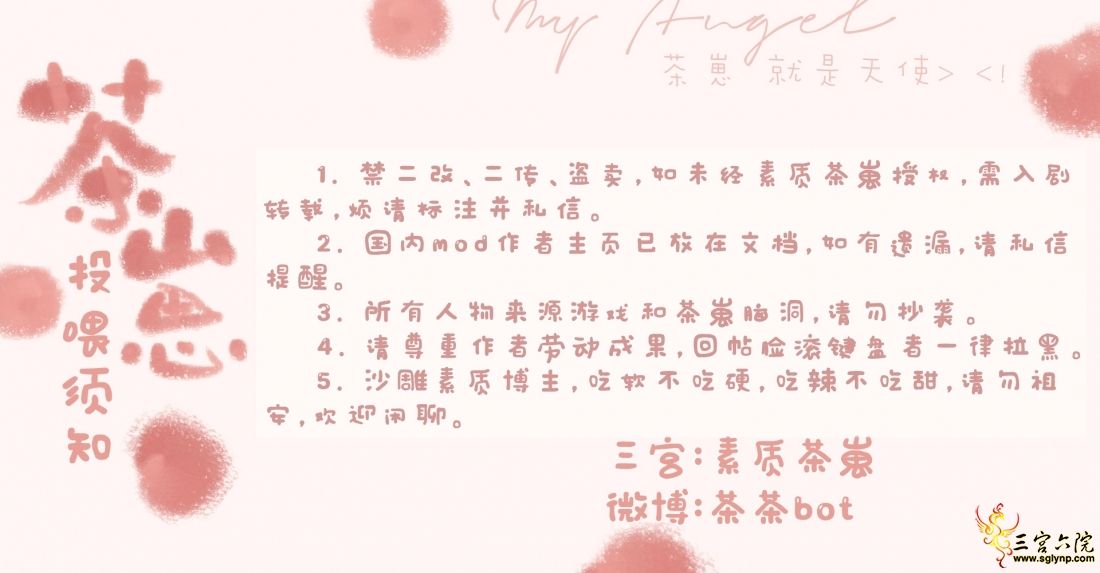 My Angel
茶崽 就是天使> <!
茶崽
投喂须知
1. 禁二改、二传、盗卖,如未经素质茶崽授权,需入剧
转载,烦请标注并私信。
2. 国内mod作者主页已放在文档,如有遗漏,请私信
提醒。
3. 所有人物来源游戏和茶崽脑洞,请勿抄袭。
4. 请尊重作者劳动成果,回帖脸滚键盘者一律拉黑。
5. 沙雕素质博主,吃软不吃硬,吃辣不吃甜,请勿祖
安,欢迎闲聊。
三宫:素质茶崽
微博:茶茶bot
三宫六院
www.sglynp.com